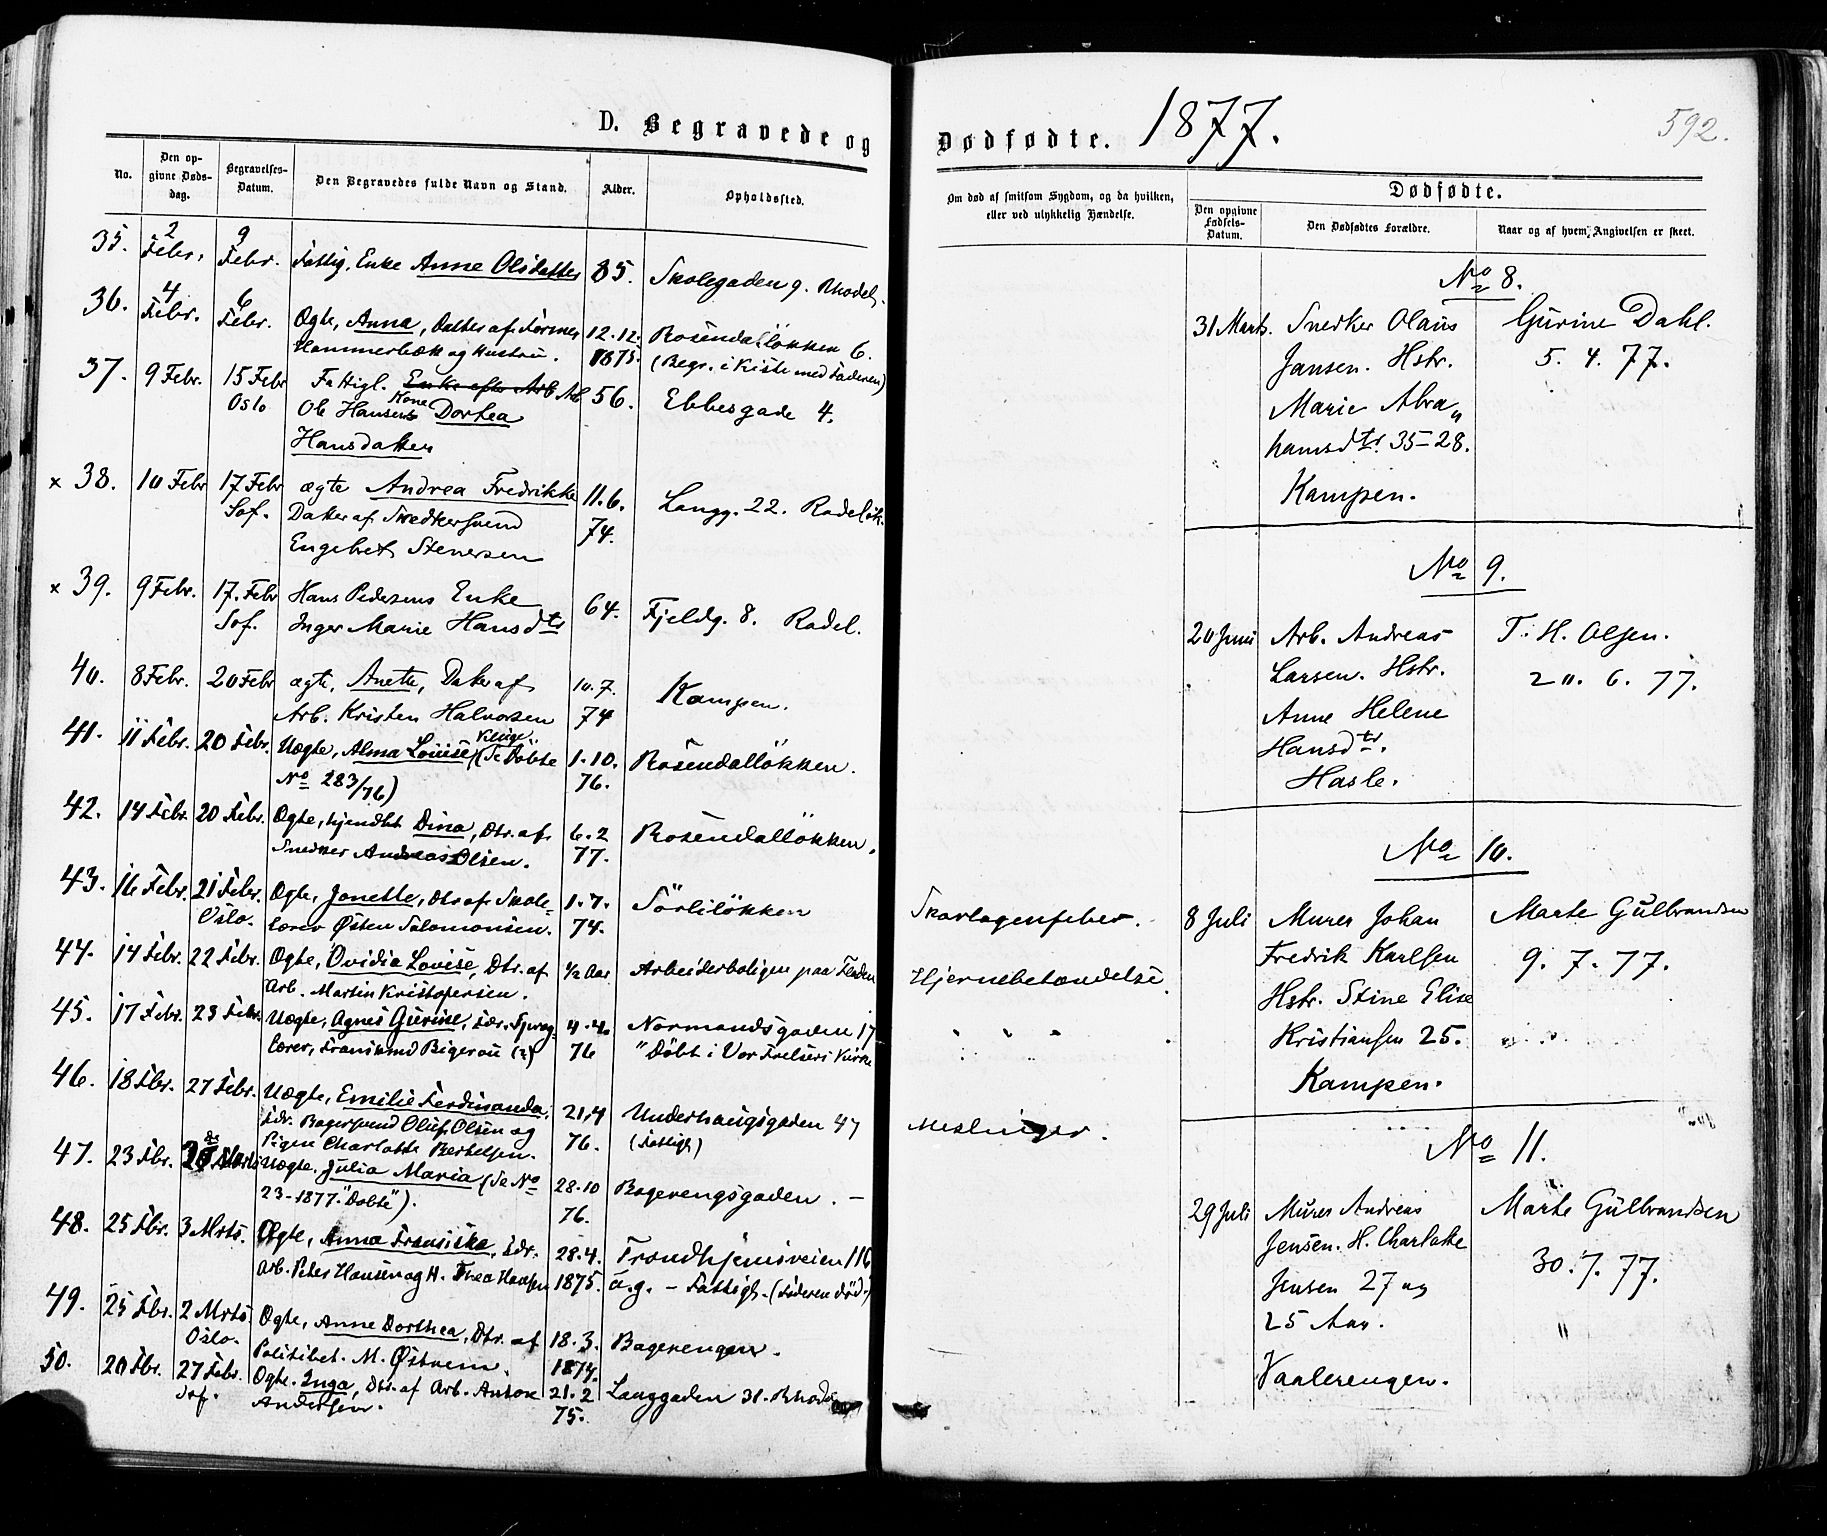 D. Begravede og Dødfødte. 1877. 592.
No.
Den opgivne Dødsdag.
Begravelses-Datum.
Den Begravedes fulde Navn og Stand.
Alder.
Opholdssted.
Om død af smitsom Sygdom, og da hvilken, eller ved ulykkelig Hændelse.
Dødfødte.
Den opgivne Fødsels-Datum.
Den Dødfødtes Forældre.
Naar og af hvem Angivelsen er skeet.
35. 2 Febr. 9 Febr. Fattig, Enke Anne Olsdatter 85. Skolegaden 9. Rhodel.
36. 4 Febr. 6 Febr. Ægte, Anna, Datter af Former 12.12. Rosendalløkken 6.
Hammerbæk og Hustru. 1875. (Begr. i Kiste med Faderen)
37. 9 Febr. 15 Febr Fattigl. Enke efter Arb Arb 56. Ebbesgade 4.
Oslo Ole Hansens Kone Dorthea
Hansdatter
x 38. 10 Febr 17 Febr ægte Andrea Fredrikke 11.6. Langg. 22. Rodeløk.
Sof. Datter af Snedkersvend 74.
Engebret Stenersen
x 39. 9 Febr. 17. Febr Hans Pedersens Enke 64. Fjeldg. 8. Rodel.
Sof. Inger Marie Hansdtr
40. 8 Febr. 20 Febr ægte, Anette, Datter af 10.7. Kampen.
Arb. Kristen Halvorsen 74
41. 11 Febr. 20 Febr. Uægte, Alma Louise (Se Døbte 1.10. Rosendalløkken.
No 283/76) 76.
42. 14 Febr. 20 Febr. Ægte, hjemdøbt Dina, Dtr. af 6.2 Rosendalløkken.
Snedker Andreas Olsen. 77.
43. 16 Febr. 21 Febr. Ægte, Jonette, Dtr af Skole- 1.7. Sörliløkken Skarlagenfeber.
Oslo. lærer Østen Salomonsen. 74.
44. 14 Febr. 22 Febr. Ægte, Ovidia Lovise, Dtr. af ½ Aar Arbeiderboligen paa Hjernebetændelse.
Arb. Martin Kristofersen.
45. 17 Febr. 23 Febr. Uægte, Agnes Gurine, Normandsgaden 17
76 "Døbt i Vor Frelsers Kirke
46. 18 Fbr. 27 Febr. Uægte, Emilie Ferdinanda, 21.4 Underhaugsgaden 47 Meslinger.
Fdr. Bagersvend Oluf Olsen og 76. (Fattigh)
Pigen Charlotte Bertelsen.
47. 23 Fbr. Uægte. Julia Maria (Se No 28.10 Bagerengsgaden. -
23-1877. "Døbte"). 76.
48. 25 Fbr. 3 Mrts. Ægte, Anna Fransiska, Fdr. 28.4. Trondhjemsveien 116
Arb. Peter Hansen og H. Thea Hansen 1875. a.g. - Fattigh. (Faderen død)
49. 25 Fbr. 2 Mrts. Ægte, Anne Dorthea, Dtr. af 18.3. Bagerengen.
Oslo. Politibet. M. Østrem. 1874.
50. 20 Fbr. 27 Febr. Ægte. Inga, Dtr. af Arb. Anton 21.2 Langgaden 31.
Sof. Andersen. 75.
No 8.
31 Marts. Snedker Olaus Gurine Dahl.
Jansen. Hstr. 5. 4. 77.
Marie Abra„
hamsdtr. 35-28.
Kampen.
No 9.
20 Juni Arb. Andreas T. H. Olsen.
Larsen. Hstr. 20. 6. 77.
Anne Helene
Hansdtr.
Hasle.
No 10.
8 Juli Murer Johan Marte Gulbrandsen
Fredrik Karlsen 9. 7. 77.
Hstr. Stine Elise
Kristiansen 25.
Kampen.
No 11.
29 Juli Murer Andreas Marte Gulbrandsen
Jensen. H. Charlotte 30. 7. 77.
Jensen 27 og
25 Aar.
Vaalerengen.